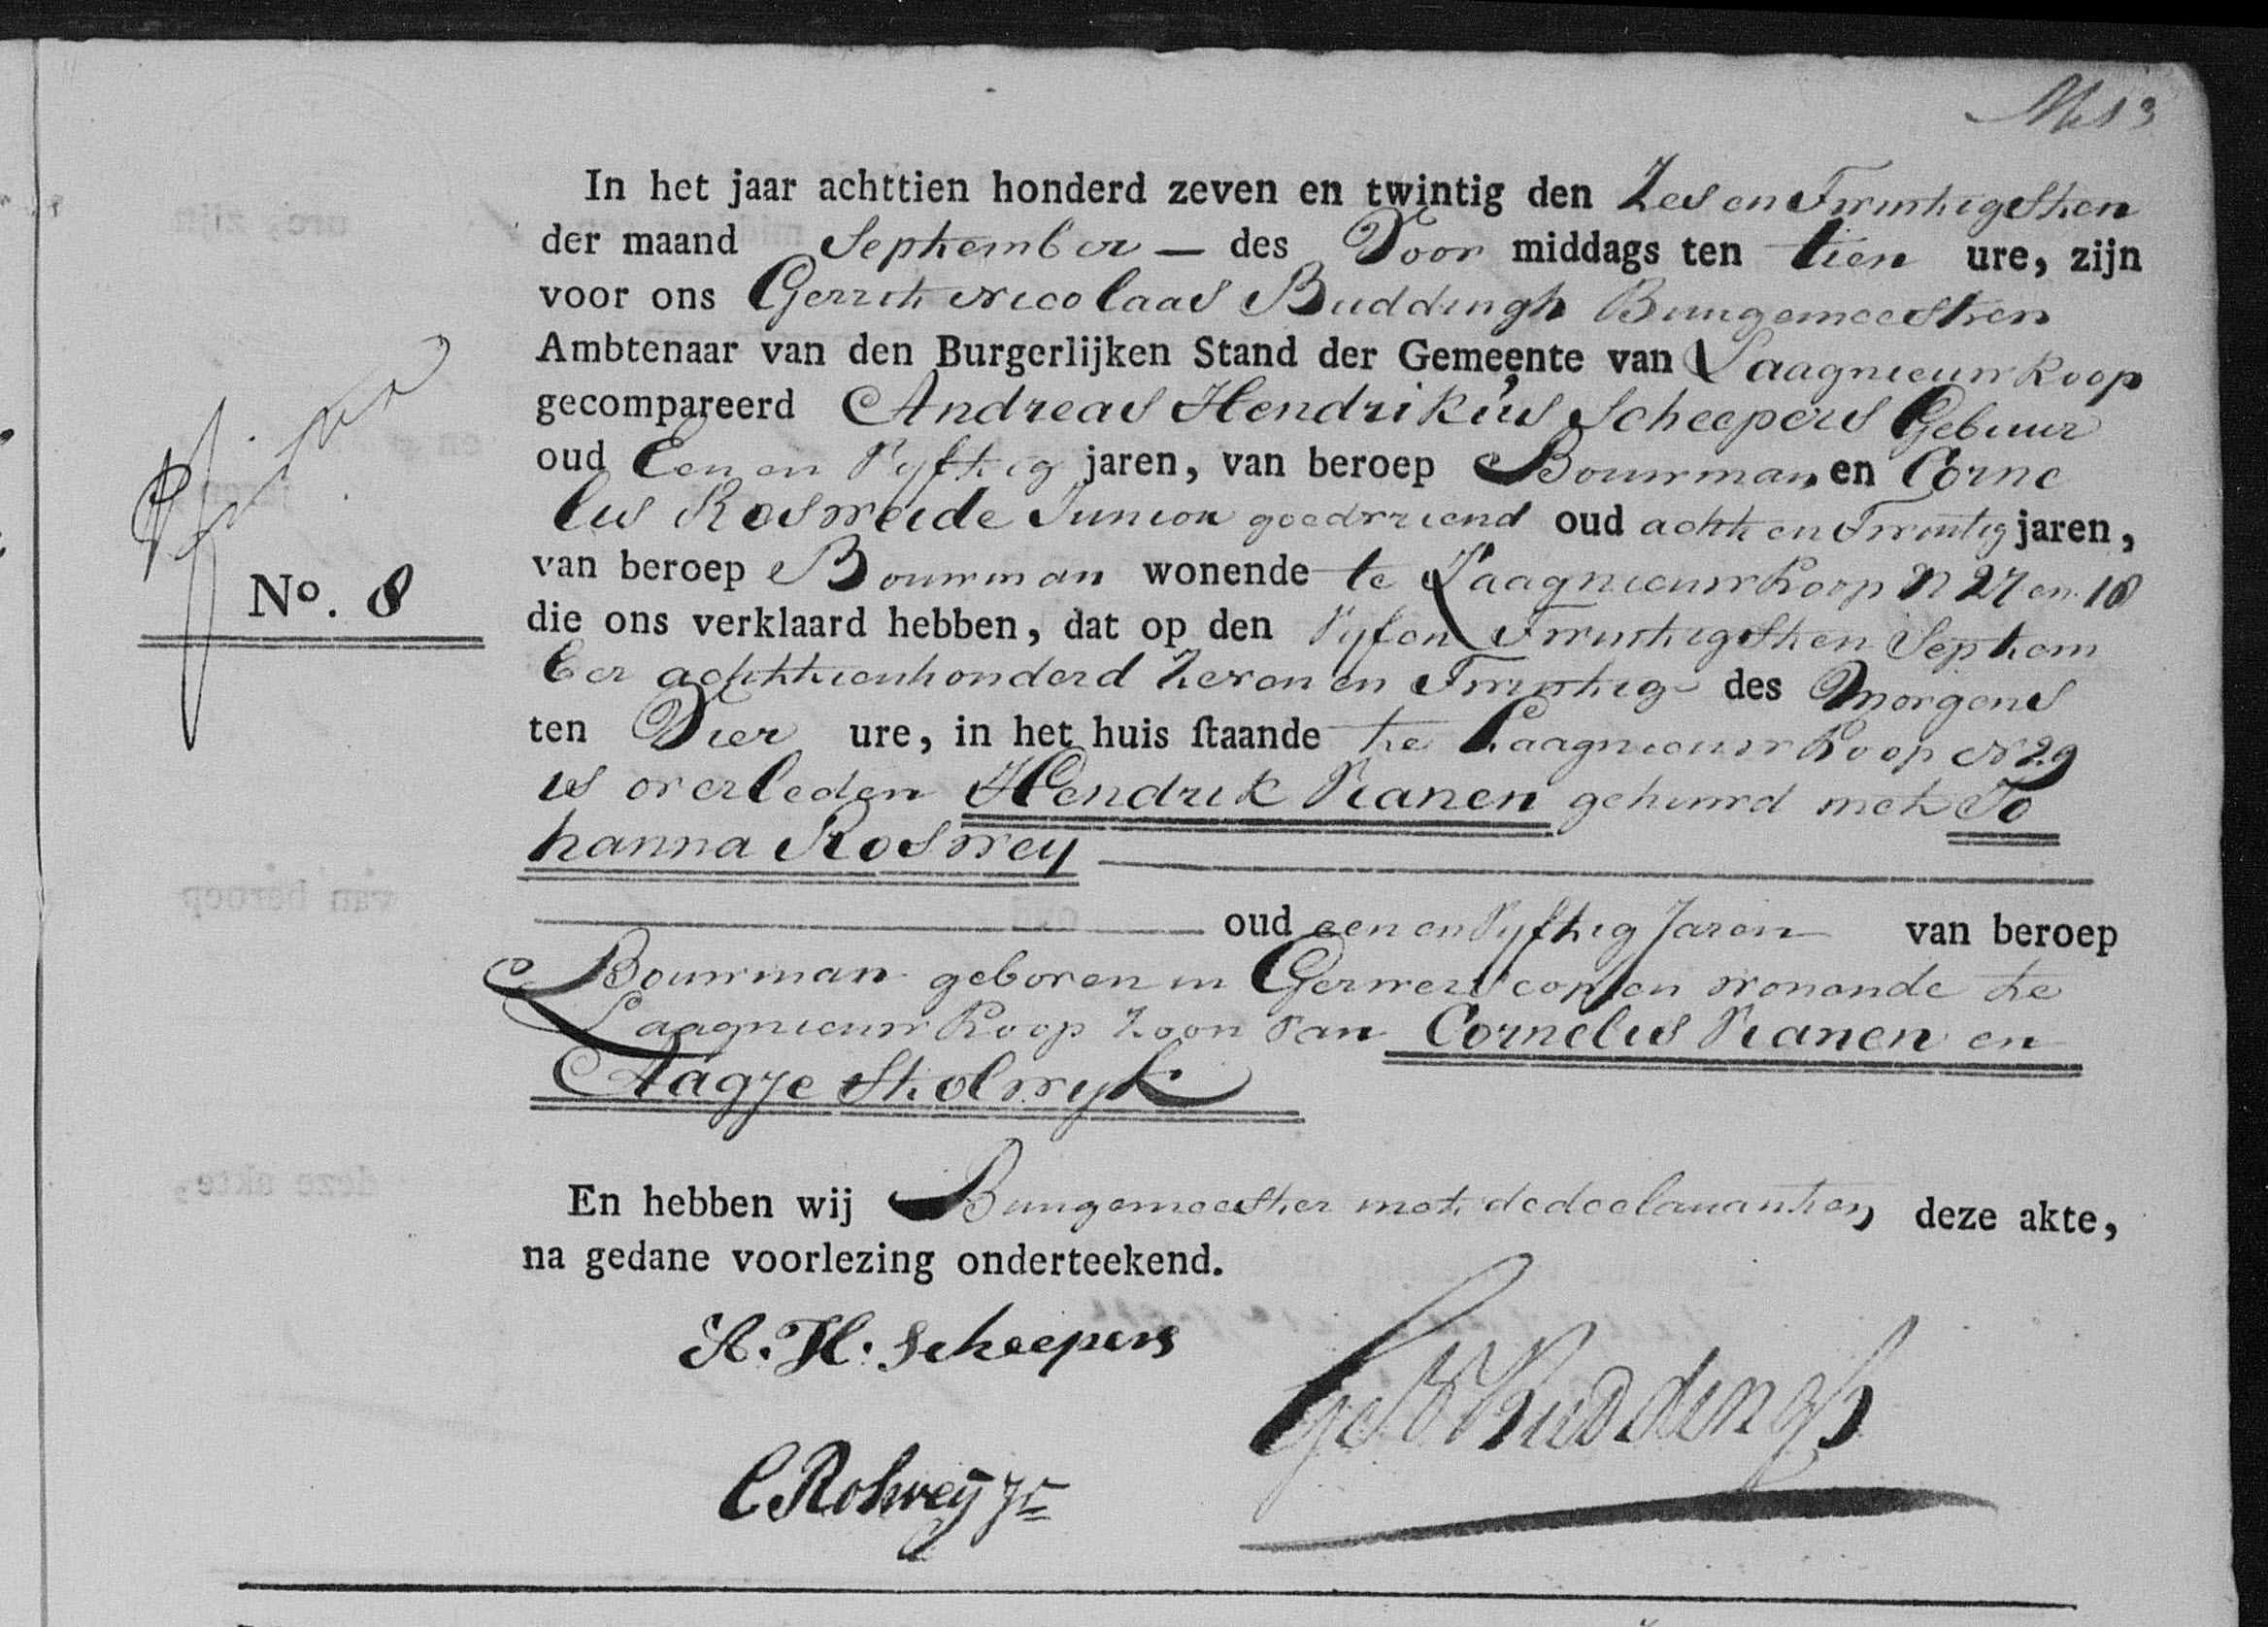 In het jaar achttien honderd zeven en twintig den Zes en Twintigsten
der maand September — des Voor middags ten tien ure, zijn
voor ons Gerrit Nicolaas Buddingh Burgemeester
Ambtenaar van den Burgerlijken Stand der Gemeente van Laagnieuwkoop
gecompareerd Andreas Hendrikus Scheepers Gebuur
oud Een en Vyftig jaren, van beroep Bouwman en Corne
lis Rosweide Junior goedvriend oud acht en Twintig jaren,
No. 8
van beroep Bouwman wonende te Laagnieuwkoop N 27 en 18
die ons verklaard hebben, dat op den Vyf en Twintigsten Septem
ber achttienhonderd Zeven en Twintig des Morgens
ten Vier ure, in het huis staande te Laagnieuwkoop N 29
is overleden Hendrik Vianen gehuwd met Jo
hanna Roswey
oud een en Vyftig Jaren van beroep
Bouwman geboren in Gerverscop en wonende te
Laagnieuwkoop Zoon van Cornelis Vianen en
Aagje Stolwyk
En hebben wij Burgemeester met de declaranten deze akte,
na gedane voorlezing onderteekend.
A. H. Scheepers
G N Buddingh
C Roswey Jr